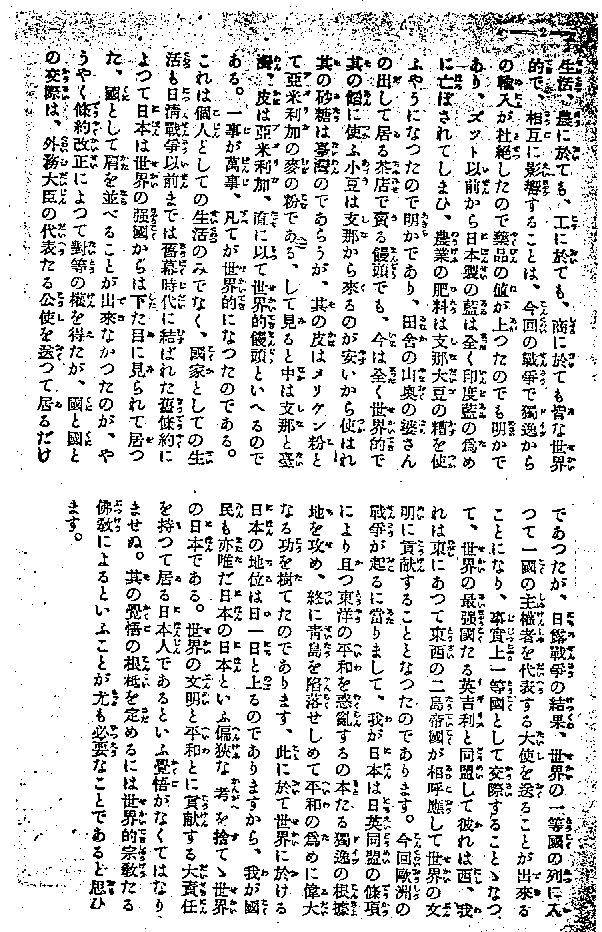 生活、農に於ても、工に於ても、商に於ても皆な世界
的で、相互に影響することは、今回の戰爭で獨逸から
の輸入が杜絕したので藥品の値が上つたのでも明かで
あり、ズット以前から日本製の藍は全く印度藍の爲め
に亡ぼされてしまひ、農業の肥料は支那大豆の糟を使
ふやうになつたので明かであり、田舍の山奧の婆さん
の出して居る茶店で賣る饅頭でも、今は全く世界的で
其の餡に使ふ小豆は支那から來るのが安いから使はれ
其の砂糖は臺灣のであらうが、其の皮はメリケン粉と
て亞米利加の麥の粉である、して見ると中は支那と臺
灣、皮は亞米利加、直に以て世界的饅頭といへるので
ある。一事が萬事、凡てが世界的になつたのである。
これは個人としての生活のみでなく、國家としての生
活も日淸戰爭以前までは舊幕時代に結ばれた舊條約に
よつて日本は世界の强國からは下た目に見られて居つ
た、國として肩を並べることが出來なかつたのが、や
うやく條約改正によつて對等の權を得たが、國と國と
の交際は、外務大臣の代表たる公使を送つて居るだけ
であつたが、日露戰爭の結果、世界の一等國の列に入
つて一國の主權者を代表する大使を送ることが出來る
ことになり、事實上一等國として交際することゝなつ
て、世界の最强國たる英吉利と同盟して彼れは西、我
れは東にあつて東西の二島帝國が相呼應して世界の文
明に貢献することとなつたのであります。今回歐洲の
戰爭が起るに當りまして、我が日本は日英同盟の條項
により且つ東洋の平和を惑亂するの本たる獨逸の根據
地を攻め、終に靑島を陷落せしめて平和の爲めに偉大
なる功を樹てたのであります、此に於て世界に於ける
日本の地位は日一日と上るのでありますから、我が國
民も亦唯だ日本の日本といふ偏狹な考を捨てゝ世界
の日本である。世界の文明と平和とに貢献する大責任
を持つて居る日本人であるといふ覺悟がなくてはなり
ませぬ。其の覺悟の根柢を定めるには世界的宗敎たる
佛敎によるといふことが尤も必要なことであると思ひ
ます。